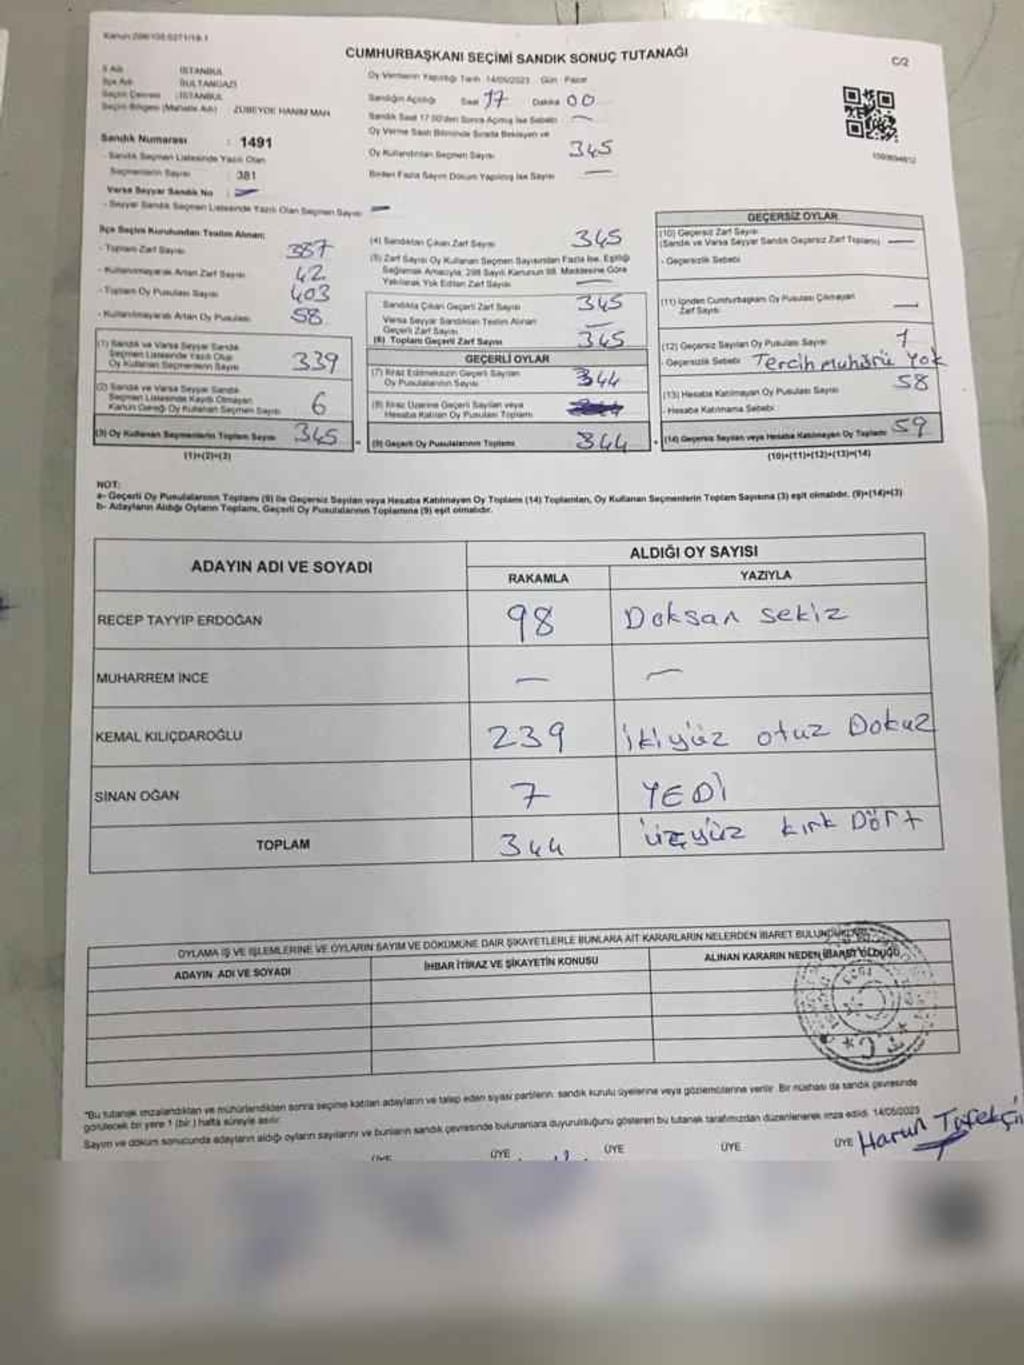 CUMHURBAŞKANI SEÇİMİ SANDIK SONUÇ TUTANAĞI
C/2
İl Adı : İSTANBUL
İlçe Adı : SULTANGAZİ
Seçim Çevresi : İSTANBUL
Seçim Bölgesi (Mahalle Adı) : ZÜBEYDE HANIM MAH
Sandık Numarası : 1491
- Sandık Seçmen Listesinde Yazılı Olan
Seçmenlerin Sayısı : 381
Varsa Seyyar Sandık No : —
- Seyyar Sandık Seçmen Listesinde Yazılı Olan Seçmen Sayısı —
Oy Vermenin Yapıldığı Tarih : 14/05/2023 Gün : Pazar
Sandığın Açıldığı Saat 17 Dakika 00
Sandık Saat 17.00'den Sonra Açılmış İse Sebebi —
Oy Verme Saati Bitiminde Sırada Bekleyen ve
Oy Kullandırılan Seçmen Sayısı 345
Birden Fazla Sayım Döküm Yapılmış İse Sayısı —
İlçe Seçim Kurulundan Teslim Alınan;
- Toplam Zarf Sayısı 387
- Kullanılmayarak Artan Zarf Sayısı 42
- Toplam Oy Pusulası Sayısı 403
- Kullanılmayarak Artan Oy Pusulası 58
(1) Sandık ve Varsa Seyyar Sandık
Seçmen Listesinde Yazılı Olup
Oy Kullanan Seçmenlerin Sayısı 339
(2) Sandık ve Varsa Seyyar Sandık
Seçmen Listesinde Kaydı Olmayan
Kanun Gereği Oy Kullanan Seçmen Sayısı 6
(3) Oy Kullanan Seçmenlerin Toplam Sayısı 345
(1)+(2)=(3)
(4) Sandıktan Çıkan Zarf Sayısı 345
(5) Zarf Sayısı Oy Kullanan Seçmen Sayısından Fazla İse, Eşitliği
Sağlamak Amacıyla, 298 Sayılı Kanunun 98. Maddesine Göre
Yakılarak Yok Edilen Zarf Sayısı —
Sandıkta Çıkan Geçerli Zarf Sayısı 345
Varsa Seyyar Sandıktan Teslim Alınan
Geçerli Zarf Sayısı —
(6) Toplam Geçerli Zarf Sayısı 345
GEÇERLİ OYLAR
(7) İtiraz Edilmeksizin Geçerli Sayılan
Oy Pusulalarının Sayısı 344
(8) İtiraz Üzerine Geçerli Sayılan veya
Hesaba Katılan Oy Pusulası Toplamı
(9) Geçerli Oy Pusulalarının Toplamı 344
GEÇERSİZ OYLAR
(10) Geçersiz Zarf Sayısı
(Sandık ve Varsa Seyyar Sandık Geçersiz Zarf Toplamı) —
- Geçersizlik Sebebi
(11) İçinden Cumhurbaşkanı Oy Pusulası Çıkmayan
Zarf Sayısı —
(12) Geçersiz Sayılan Oy Pusulası Sayısı 1
- Geçersizlik Sebebi Tercih Muhürü Yok
(13) Hesaba Katılmayan Oy Pusulası Sayısı 58
- Hesaba Katılmama Sebebi
(14) Geçersiz Sayılan veya Hesaba Katılmayan Oy Toplamı 59
(10)+(11)+(12)+(13)=(14)
NOT:
a- Geçerli Oy Pusulalarının Toplamı (9) ile Geçersiz Sayılan veya Hesaba Katılmayan Oy Toplamı (14) Toplamları, Oy Kullanan Seçmenlerin Toplam Sayısına (3) eşit olmalıdır. (9)+(14)=(3)
b- Adayların Aldığı Oyların Toplamı, Geçerli Oy Pusulalarının Toplamına (9) eşit olmalıdır.
ADAYIN ADI VE SOYADI ALDIĞI OY SAYISI
RAKAMLA YAZIYLA
RECEP TAYYİP ERDOĞAN 98 Doksan sekiz
MUHARREM İNCE — —
KEMAL KILIÇDAROĞLU 239 ikiyüz otuz Dokuz
SİNAN OĞAN 7 YEDİ
TOPLAM 344 üçyüz kırk Dört
OYLAMA İŞ VE İŞLEMLERİNE VE OYLARIN SAYIM VE DÖKÜMÜNE DAİR ŞİKAYETLERLE BUNLARA AİT KARARLARIN NELERDEN İBARET BULUNDUKLARI
ADAYIN ADI VE SOYADI İHBAR İTİRAZ VE ŞİKAYETİN KONUSU ALINAN KARARIN NEDEN İBARET OLDUĞU
*Bu tutanak imzalandıktan ve mühürlendikten sonra seçime katılan adayların ve talep eden siyasi partilerin, sandık kurulu üyelerine veya gözlemcilerine verilir. Bir nüshası da sandık çevresinde
görülecek bir yere 1 (bir) hafta süreyle asılır.
Sayım ve döküm sonucunda adayların aldığı oyların sayılarını ve bunların sandık çevresinde bulunanlara duyurulduğunu gösteren bu tutanak tarafımızdan düzenlenerek imza edildi. 14/05/2023
ÜYE ÜYE ÜYE ÜYE ÜYE Harun Tüfekçi